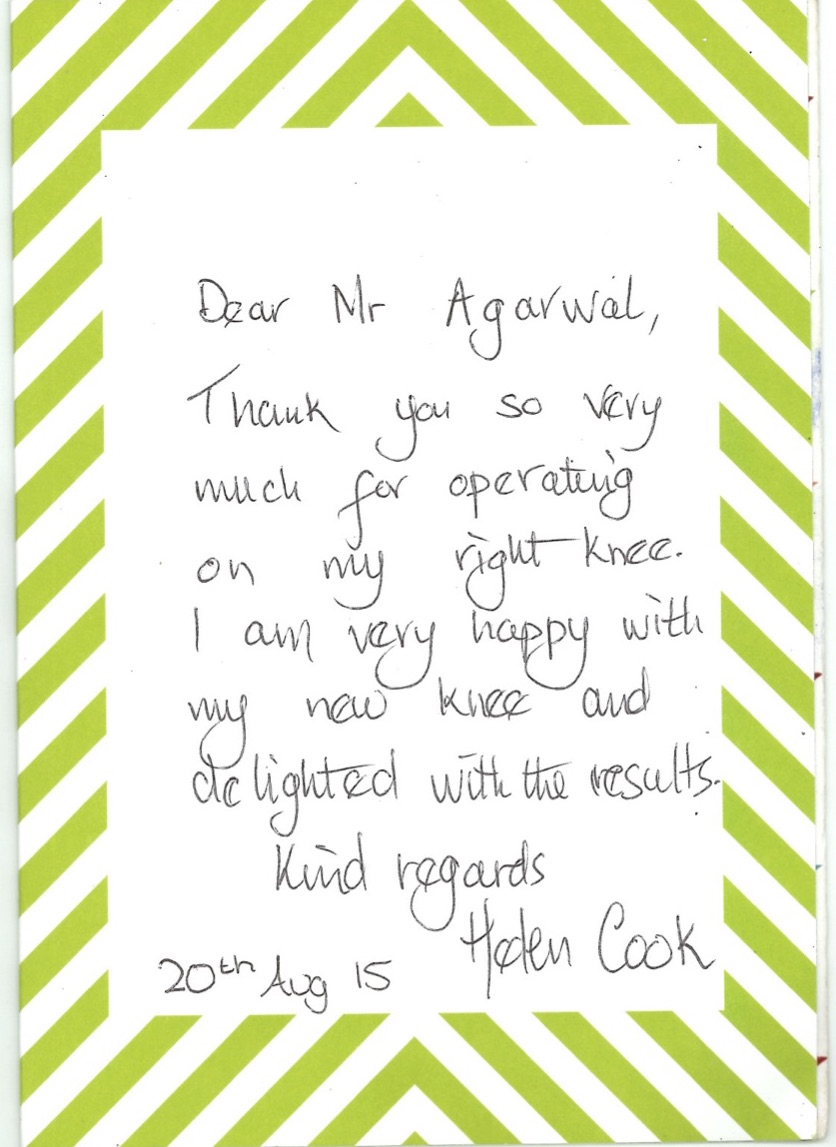 Dear Mr Agarwal,
Thank you so very
much for operating
on my right knee.
I am very happy with
my new knee and
delighted with the results.
Kind regards
Helen Cook
20th Aug 15